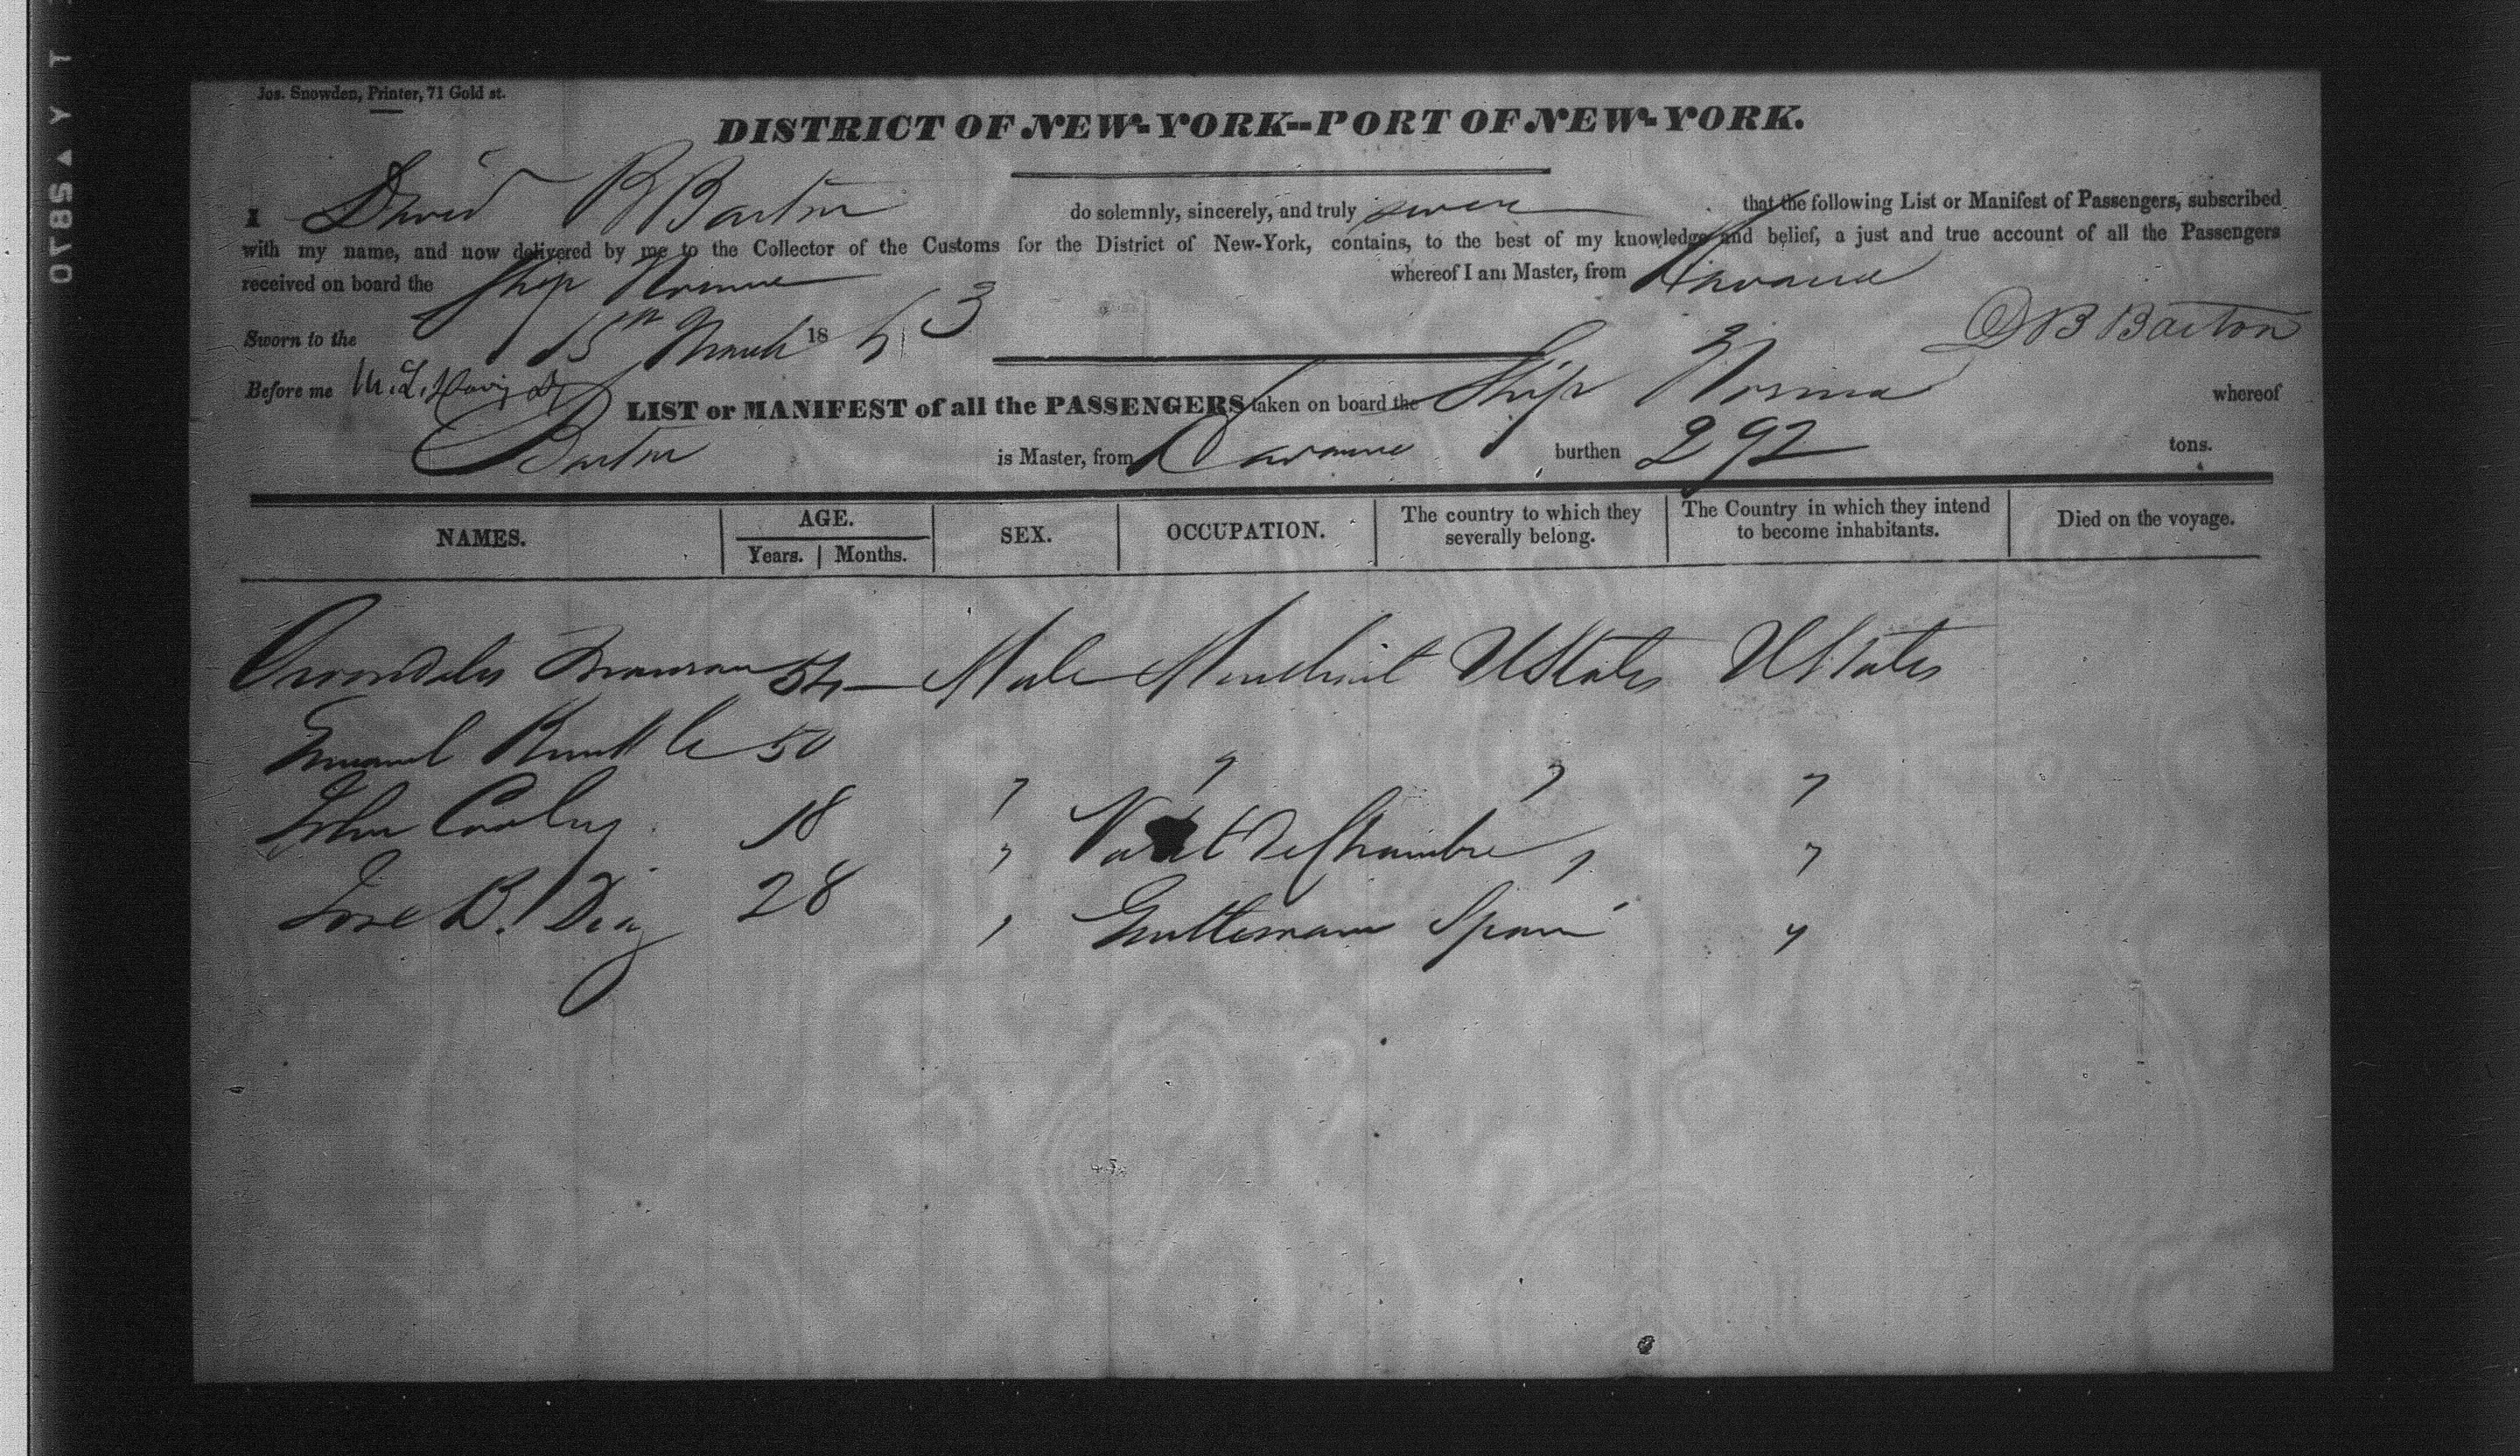 Jos. Snowden, Printer, 71 Gold st.
DISTRICT OF NEW-YORK--PORT OF NEW-YORK.
I David B Barton do solemnly, sincerely, and truly swear that the following List or Manifest of Passengers, subscribed
with my name, and now delivered by me to the Collector of the Customs for the District of New-York, contains, to the best of my knowledge and belief, a just and true account of all the Passengers
received on board the Ship Norma whereof I am Master, from Havana
Sworn to the 15th March 1843
D B Barton
Before me
LIST or MANIFEST of all the PASSENGERS taken on board the Ship Norma whereof
Barton is Master, from Havana burthen 292 tons.
NAMES. AGE. SEX. OCCUPATION. The country to which they severally belong. The Country in which they intend to become inhabitants. Died on the voyage.
Years. Months.
54 Male Merchant UStates UStates
50 " " " "
John 18 " Valet De Chambre " "
Jose B. Diaz 28 " Gentleman Spain "